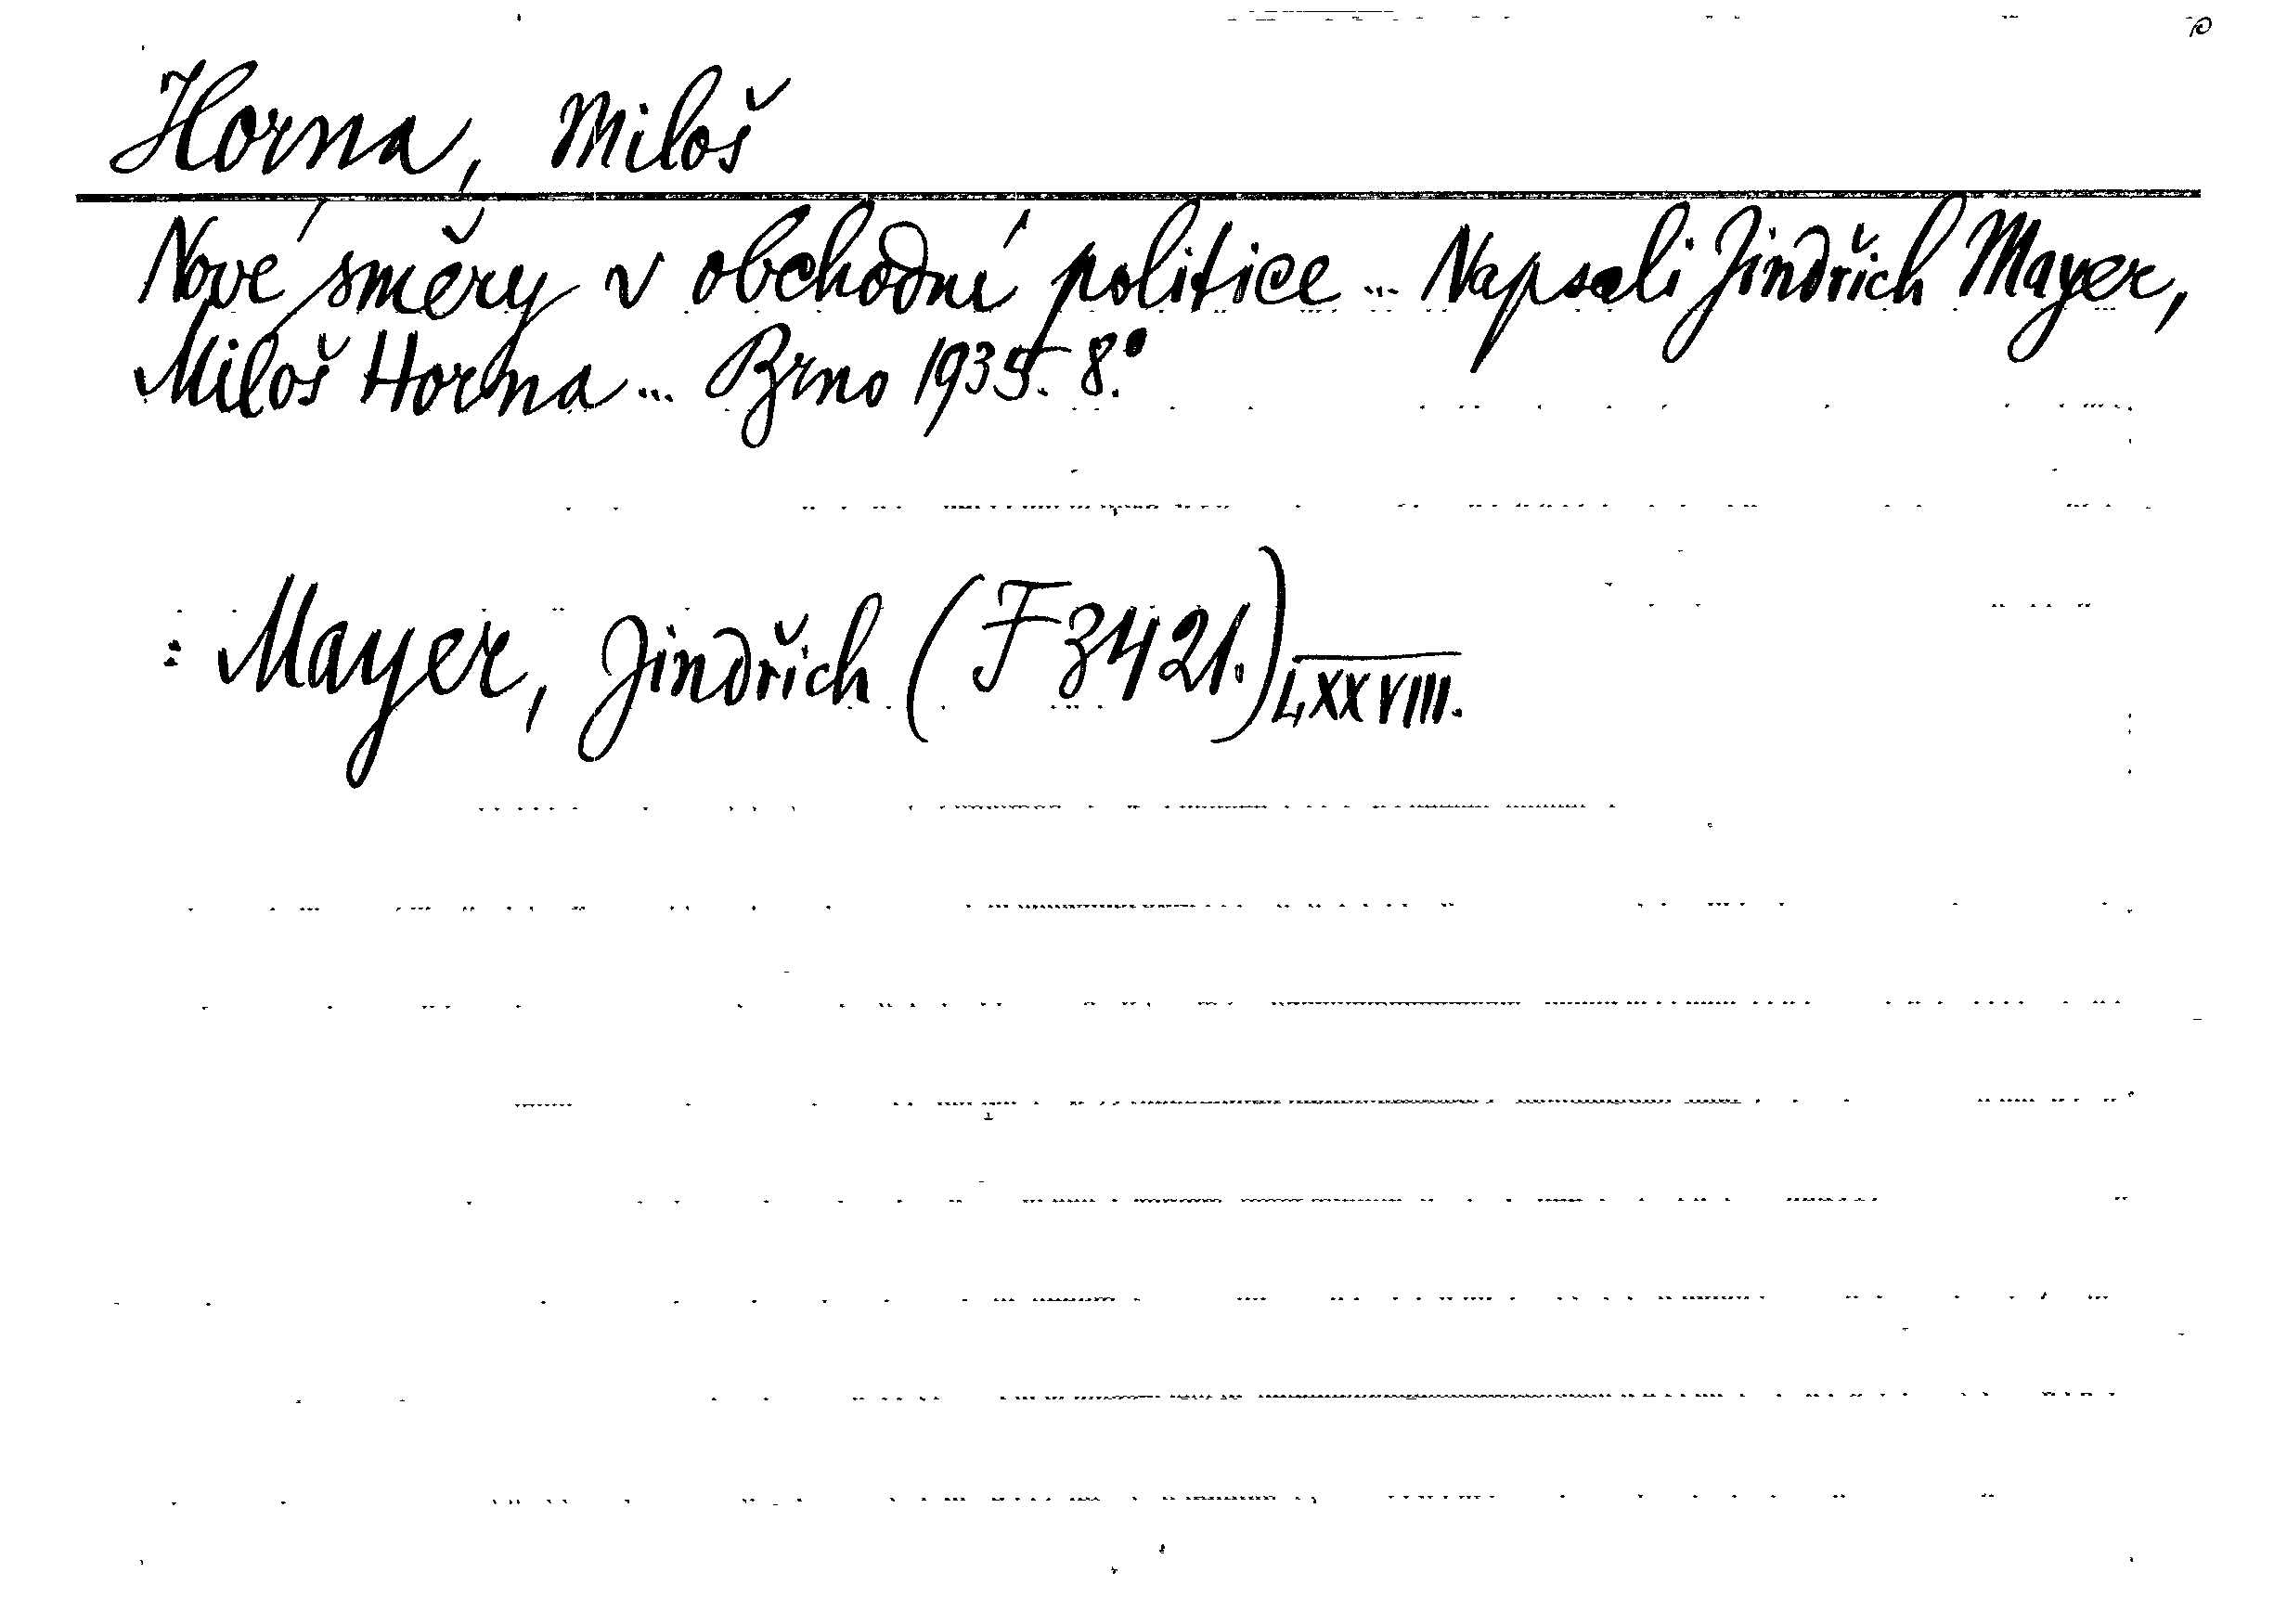 Horna, Miloš
Nové směry v obchodní politice... Napsali Jindřich Mayer,
Miloš Horna... Brno 1935. 8.°
= Mayer, Jindřich (F 3421.) LXXVIII.